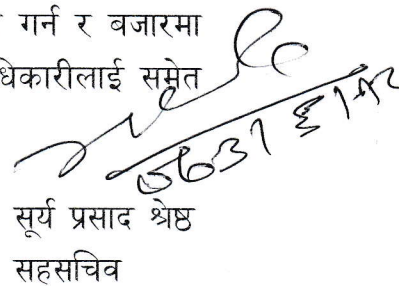 गर्न र बजारमा
धिकारीलाई समेत
सूर्य प्रसाद श्रेष्ठ
सहसचिव